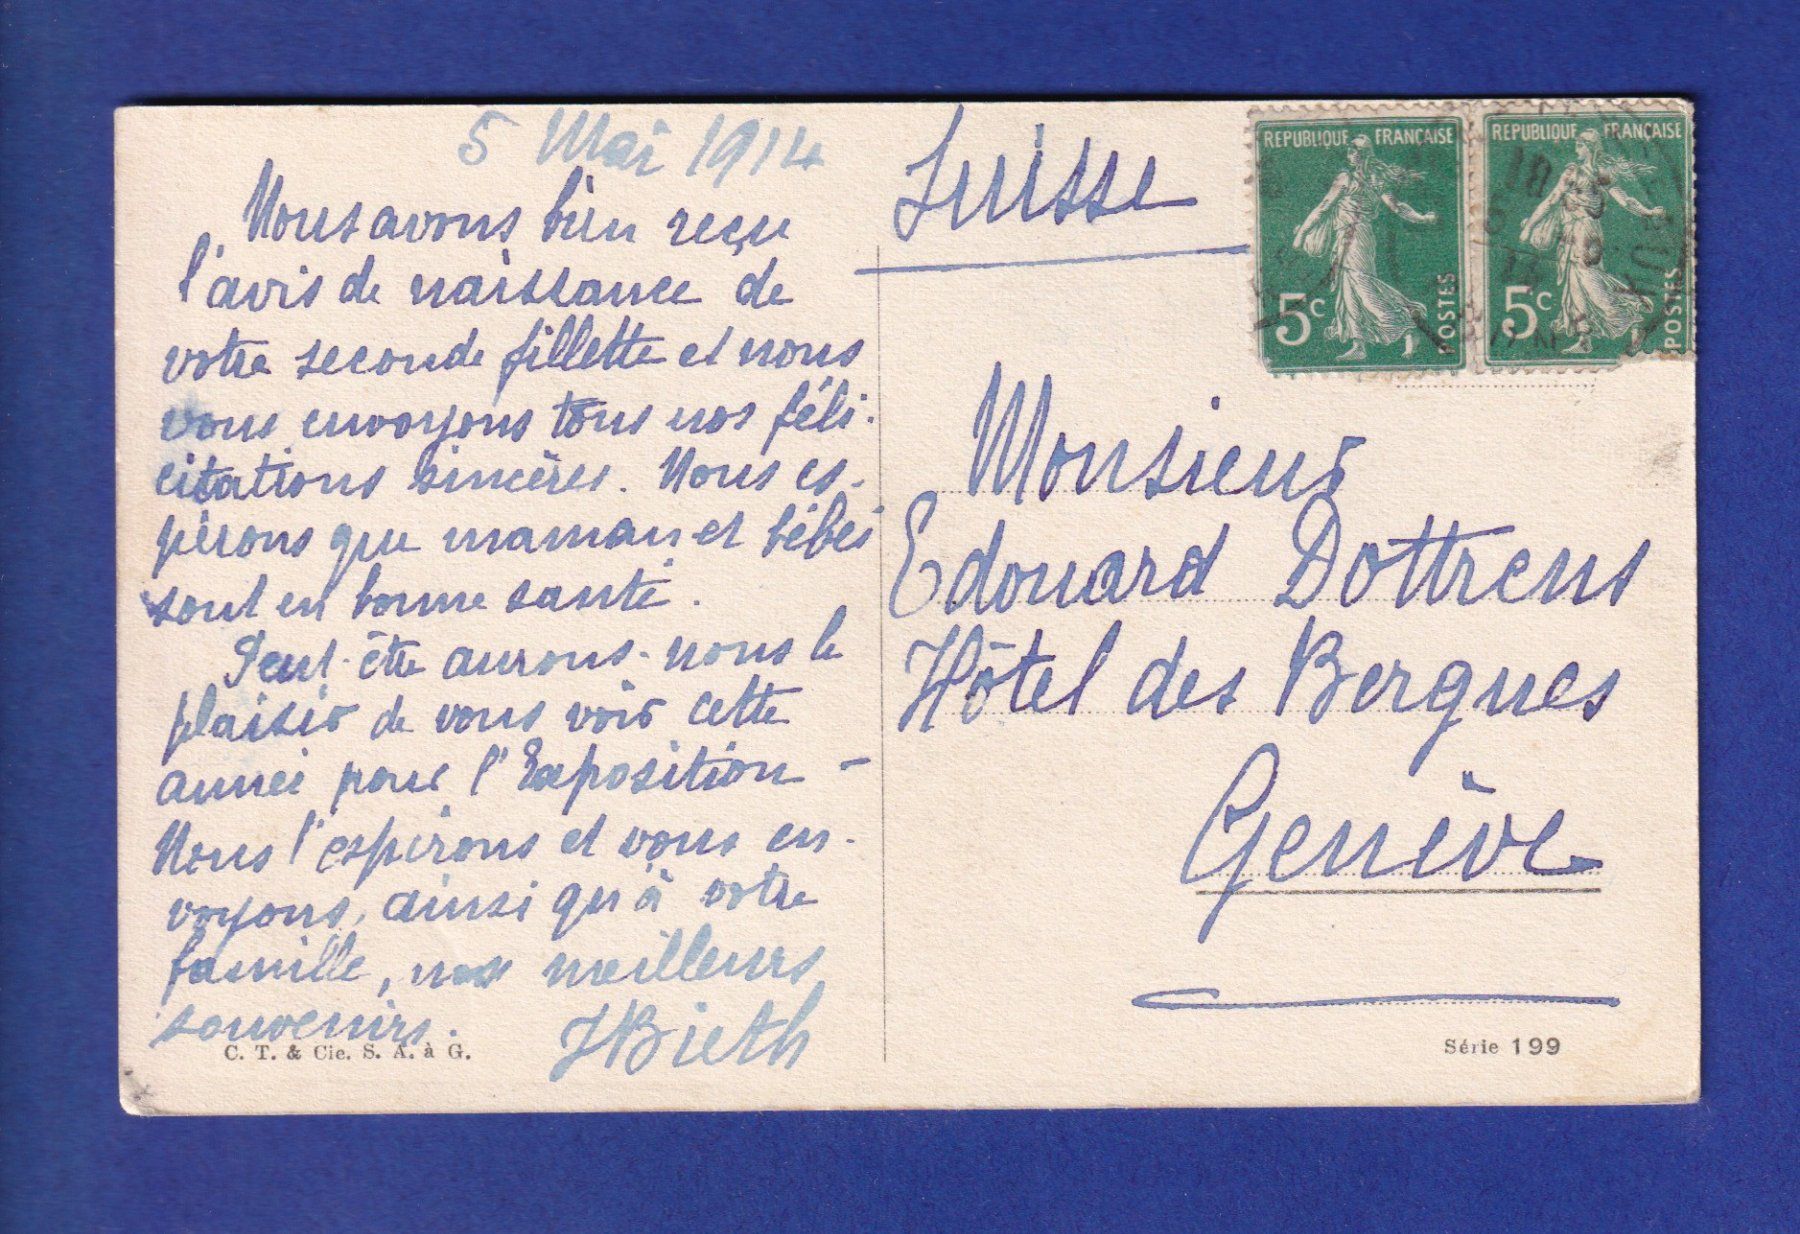 5 Mai 1914
Nous avons bien reçu
l'avis de naissance de
votre seconde fillette et nous
vous envoyons tous nos féli-
citations sincères. Nous es-
pérons que maman et bébés
sont en bonne santé.
Peut-être aurons-nous le
plaisir de vous voir cette
année pour l'Exposition -
Nous l'espérons et vous en-
voyons, ainsi qu'à votre
famille, nos meilleurs
souvenirs.
HBieth
C. T. & Cie. S. A. à G.
Suisse
REPUBLIQUE FRANÇAISE
5c
POSTES
REPUBLIQUE FRANÇAISE
5c
POSTES
Monsieur
Edouard Dottrens
Hôtel des Bergues
Genève
Série 199